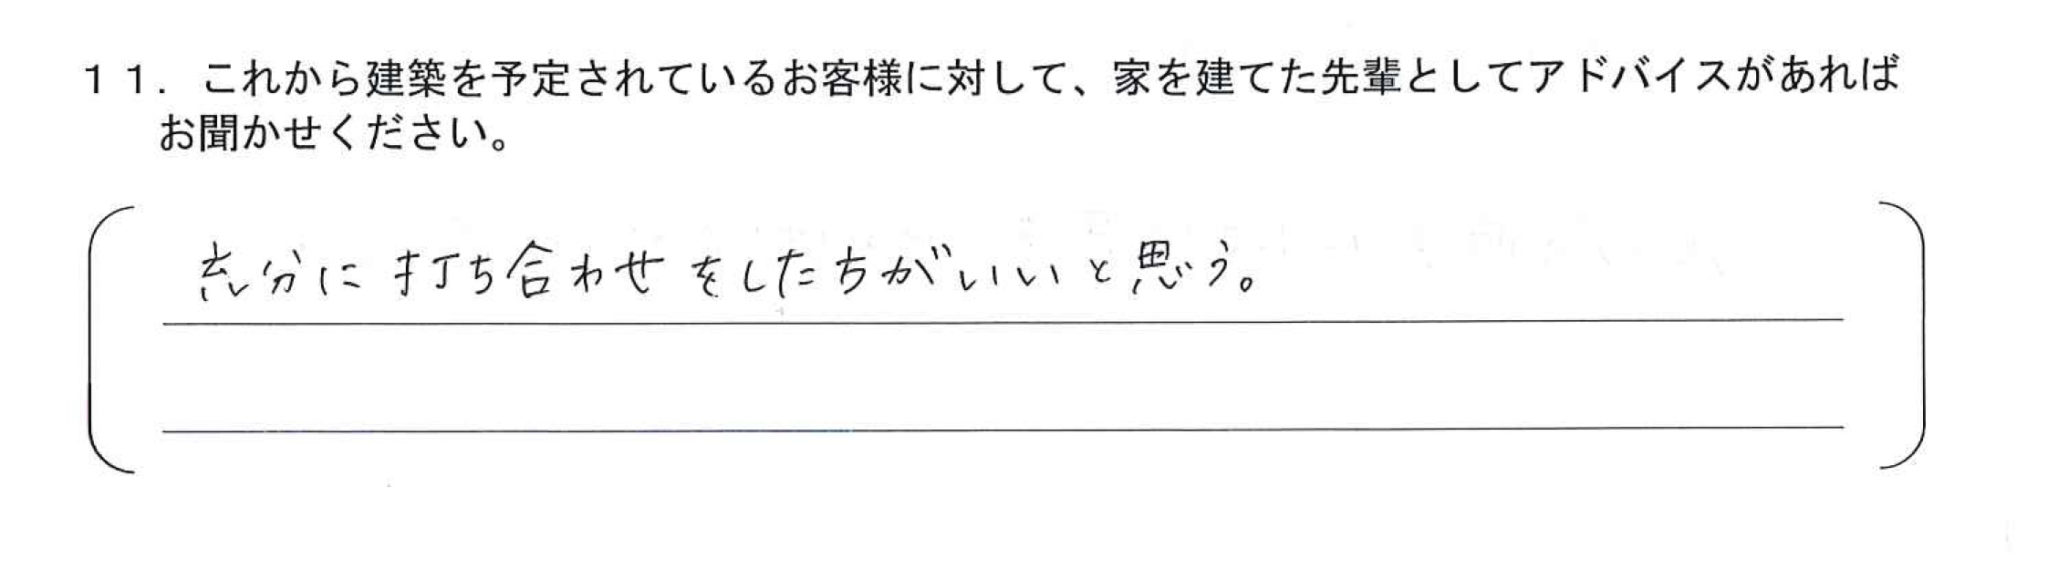 １１．これから建築を予定されているお客様に対して、家を建てた先輩としてアドバイスがあれば
お聞かせください。
充分に打ち合わせをしたちがいいと思う。